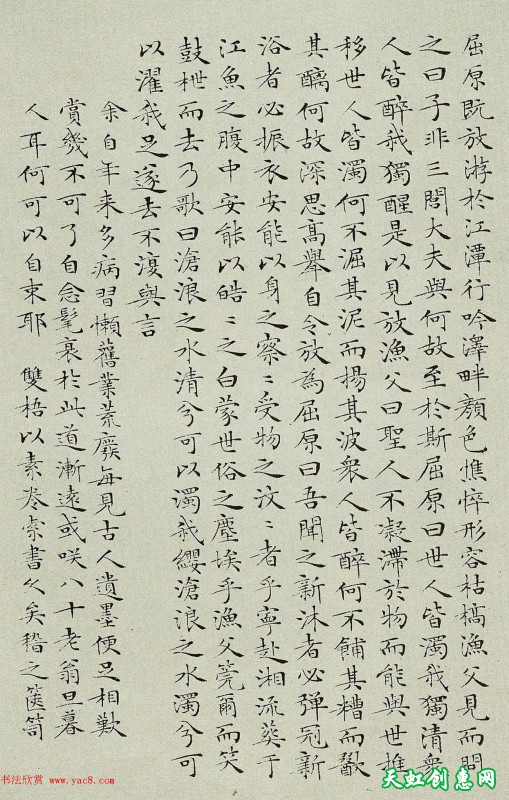 屈原既放游於江潭行吟澤畔顏色憔悴形容枯槁漁父見而問
之曰子非三閭大夫與何故至於斯屈原曰世人皆濁我獨清衆
人皆醉我獨醒是以見放漁父曰聖人不凝滯於物而能與世推
移世人皆濁何不淈其泥而揚其波衆人皆醉何不餔其糟而歠
其醨何故深思高舉自令放為屈原曰吾聞之新沐者必彈冠新
浴者必振衣安能以身之察〻受物之汶〻者乎寧赴湘流葬于
江魚之腹中安能以皓〻之白蒙世俗之塵埃乎漁父莞爾而笑
鼓枻而去乃歌曰滄浪之水清兮可以濁我纓滄浪之水濁兮可
以濯我足遂去不復與言
余自年来多病習懶舊業荒廢每見古人遺墨便足相歎
賞幾不可了自念髦衰於此道漸遠或咲八十老翁旦暮
人耳何可以自束耶 雙梧以素卷索書久矣稽之篋笥
书法欣赏 www.yac8.com
天虹创意网